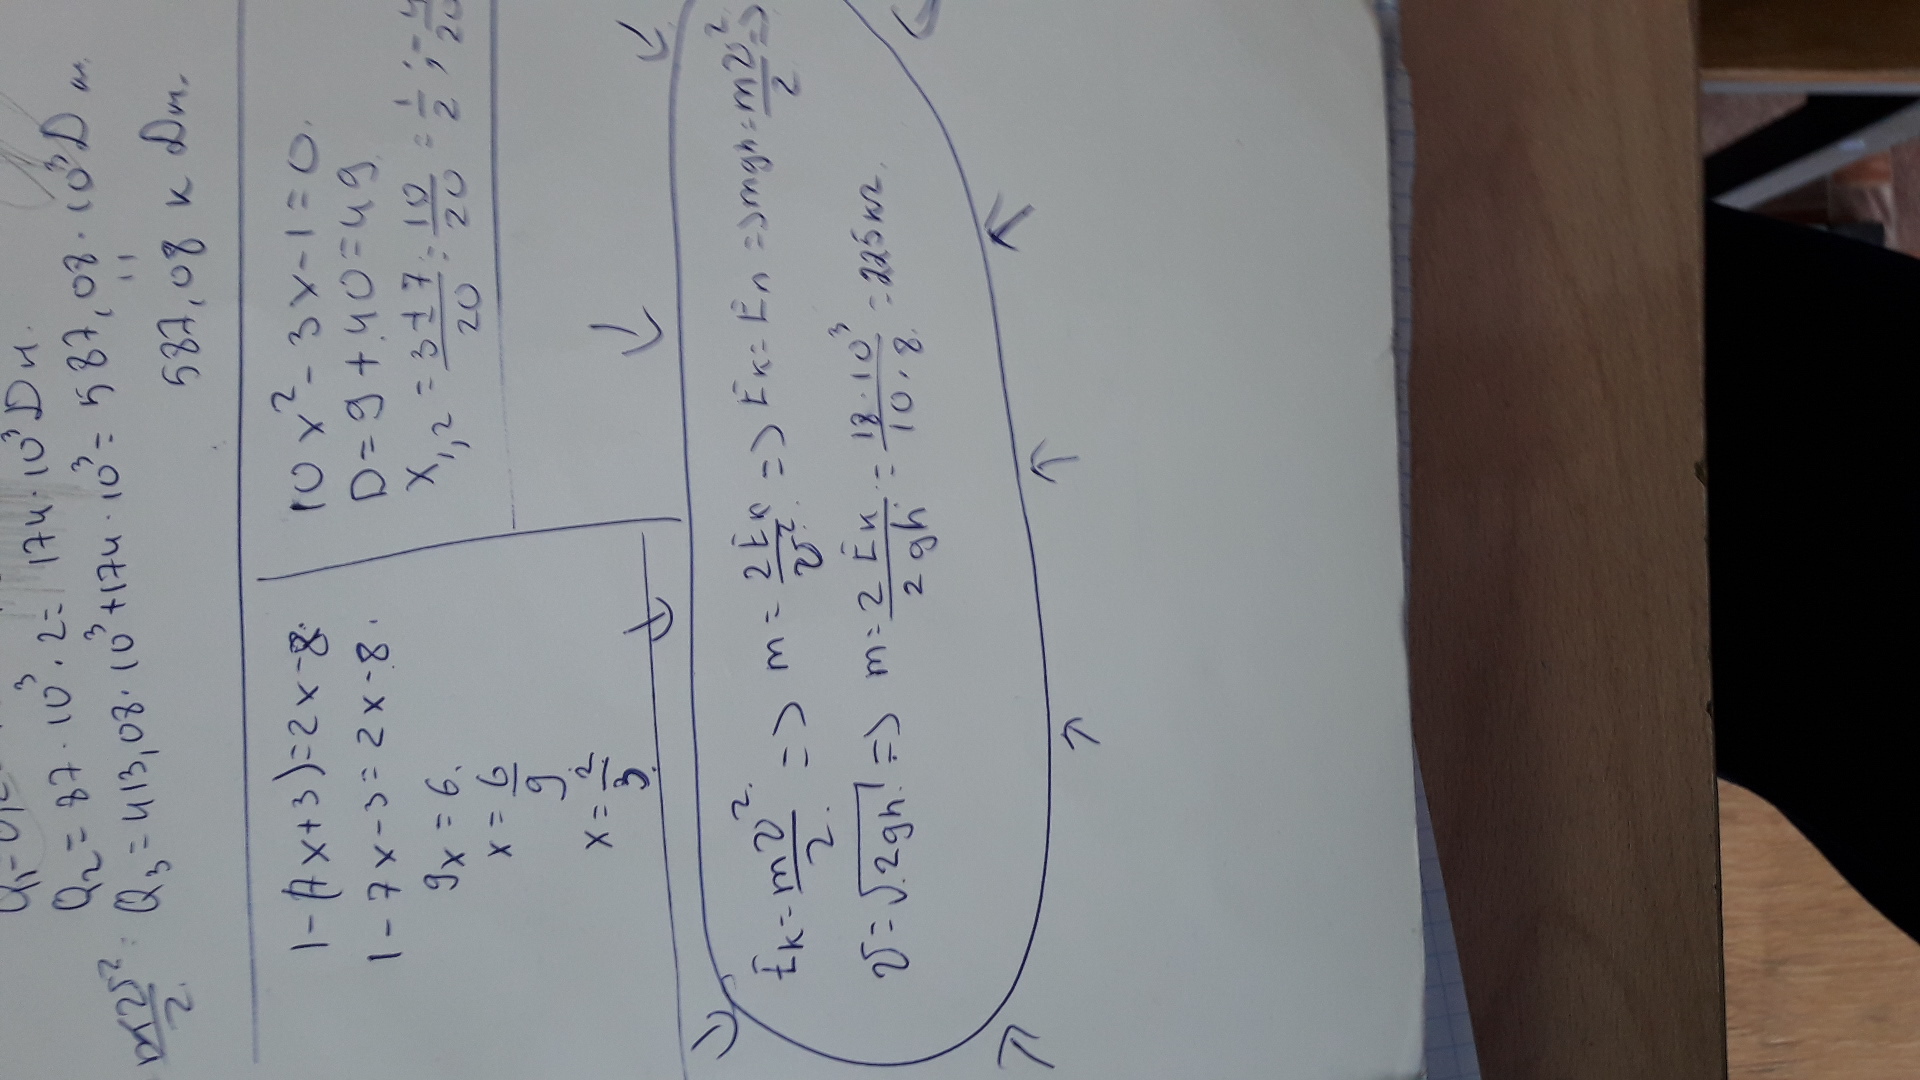 Q₂ = 87 · 10³ · 2 = 174 · 10³ Дж.
Q₃ = 413,08 · 10³ + 174 · 10³ = 587,08 · 10³ Дж.
587,08 к Дж.
mv²/2
1 - (7x + 3) = 2x - 8.
1 - 7x - 3 = 2x - 8.
9x = 6.
x = 6/9
x = 2/3.
10x² - 3x - 1 = 0.
D = 9 + 40 = 49.
x₁,₂ = (3 ± 7)/20 = 10/20 = 1/2 ;
Eк = mv²/2 => m = 2Eк/v² => Eк = Eп => mgh = mv²/2 =>
v = √2gh => m = 2Eк/2gh = 18·10³/10·8 = 225кг.